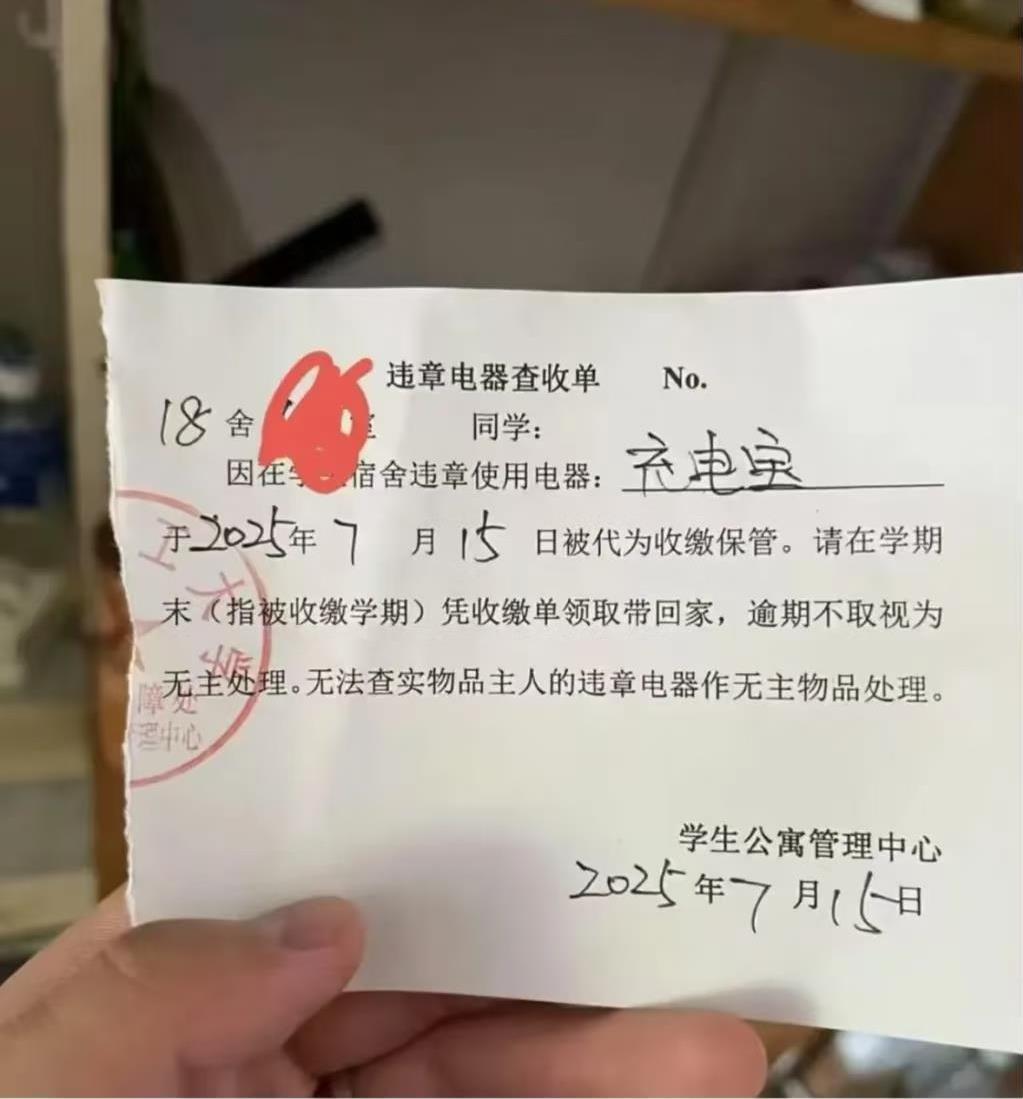 违章电器查收单 No.
18舍 室 同学：
因在学 宿舍违章使用电器：充电宝
于2025年7月15日被代为收缴保管。请在学期
末（指被收缴学期）凭收缴单领取带回家，逾期不取视为
无主处理。无法查实物品主人的违章电器作无主物品处理。
学生公寓管理中心
2025年7月15日
工大学
障处
管理中心